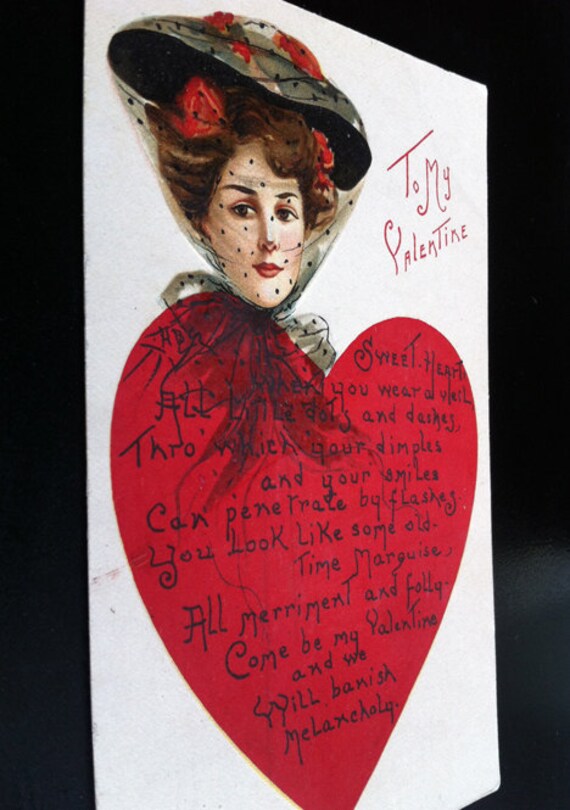 To My
Valentine
HBG
Sweet-Heart
when you wear a veil
All little dots and dashes,
Thro' which your dimples
and your smiles
Can penetrate by flashes-
You look like some old-
Time Marquise,
All merriment and folly-
Come be my Valentine
and we
Will banish
Melancholy.